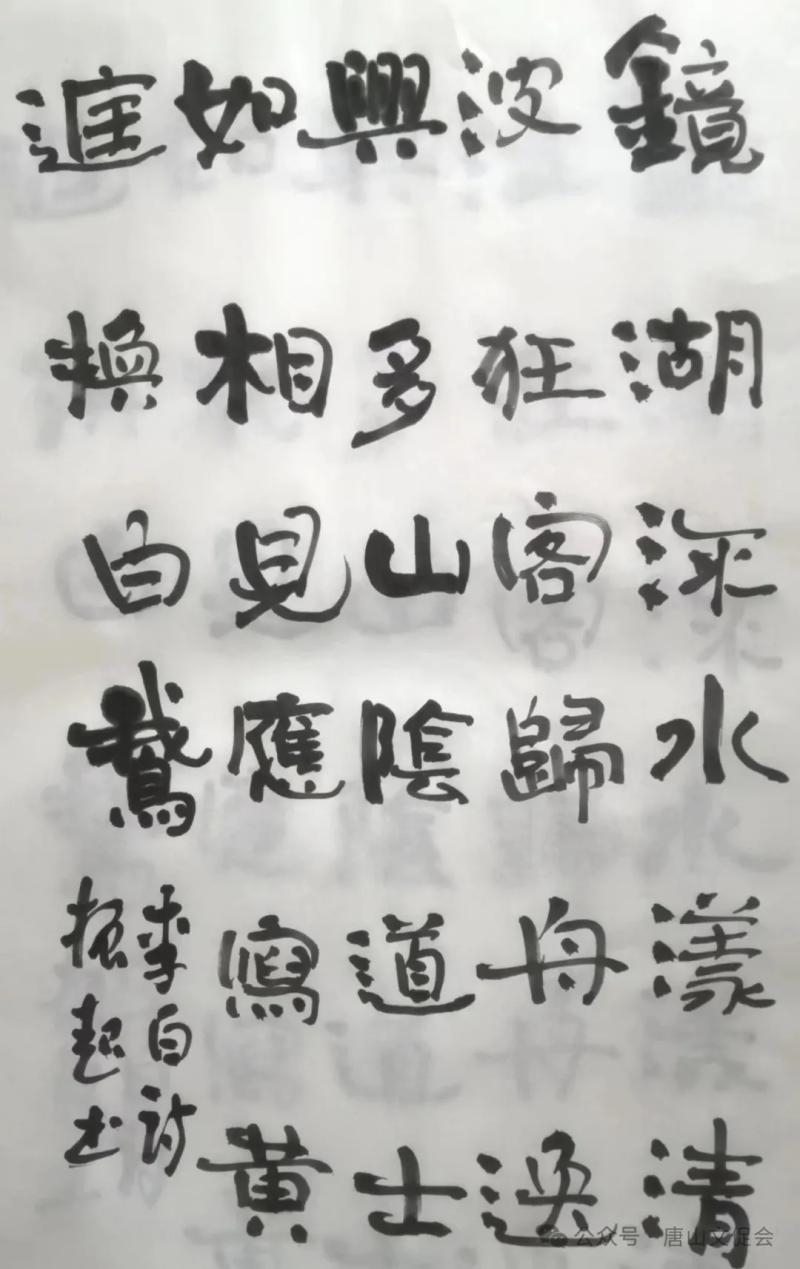 鏡湖深水漾清
波狂客歸舟逸
興多山陰道士
如相見應寫黄
庭換白鵝
李白诗
振起书
公众号·唐山文促会